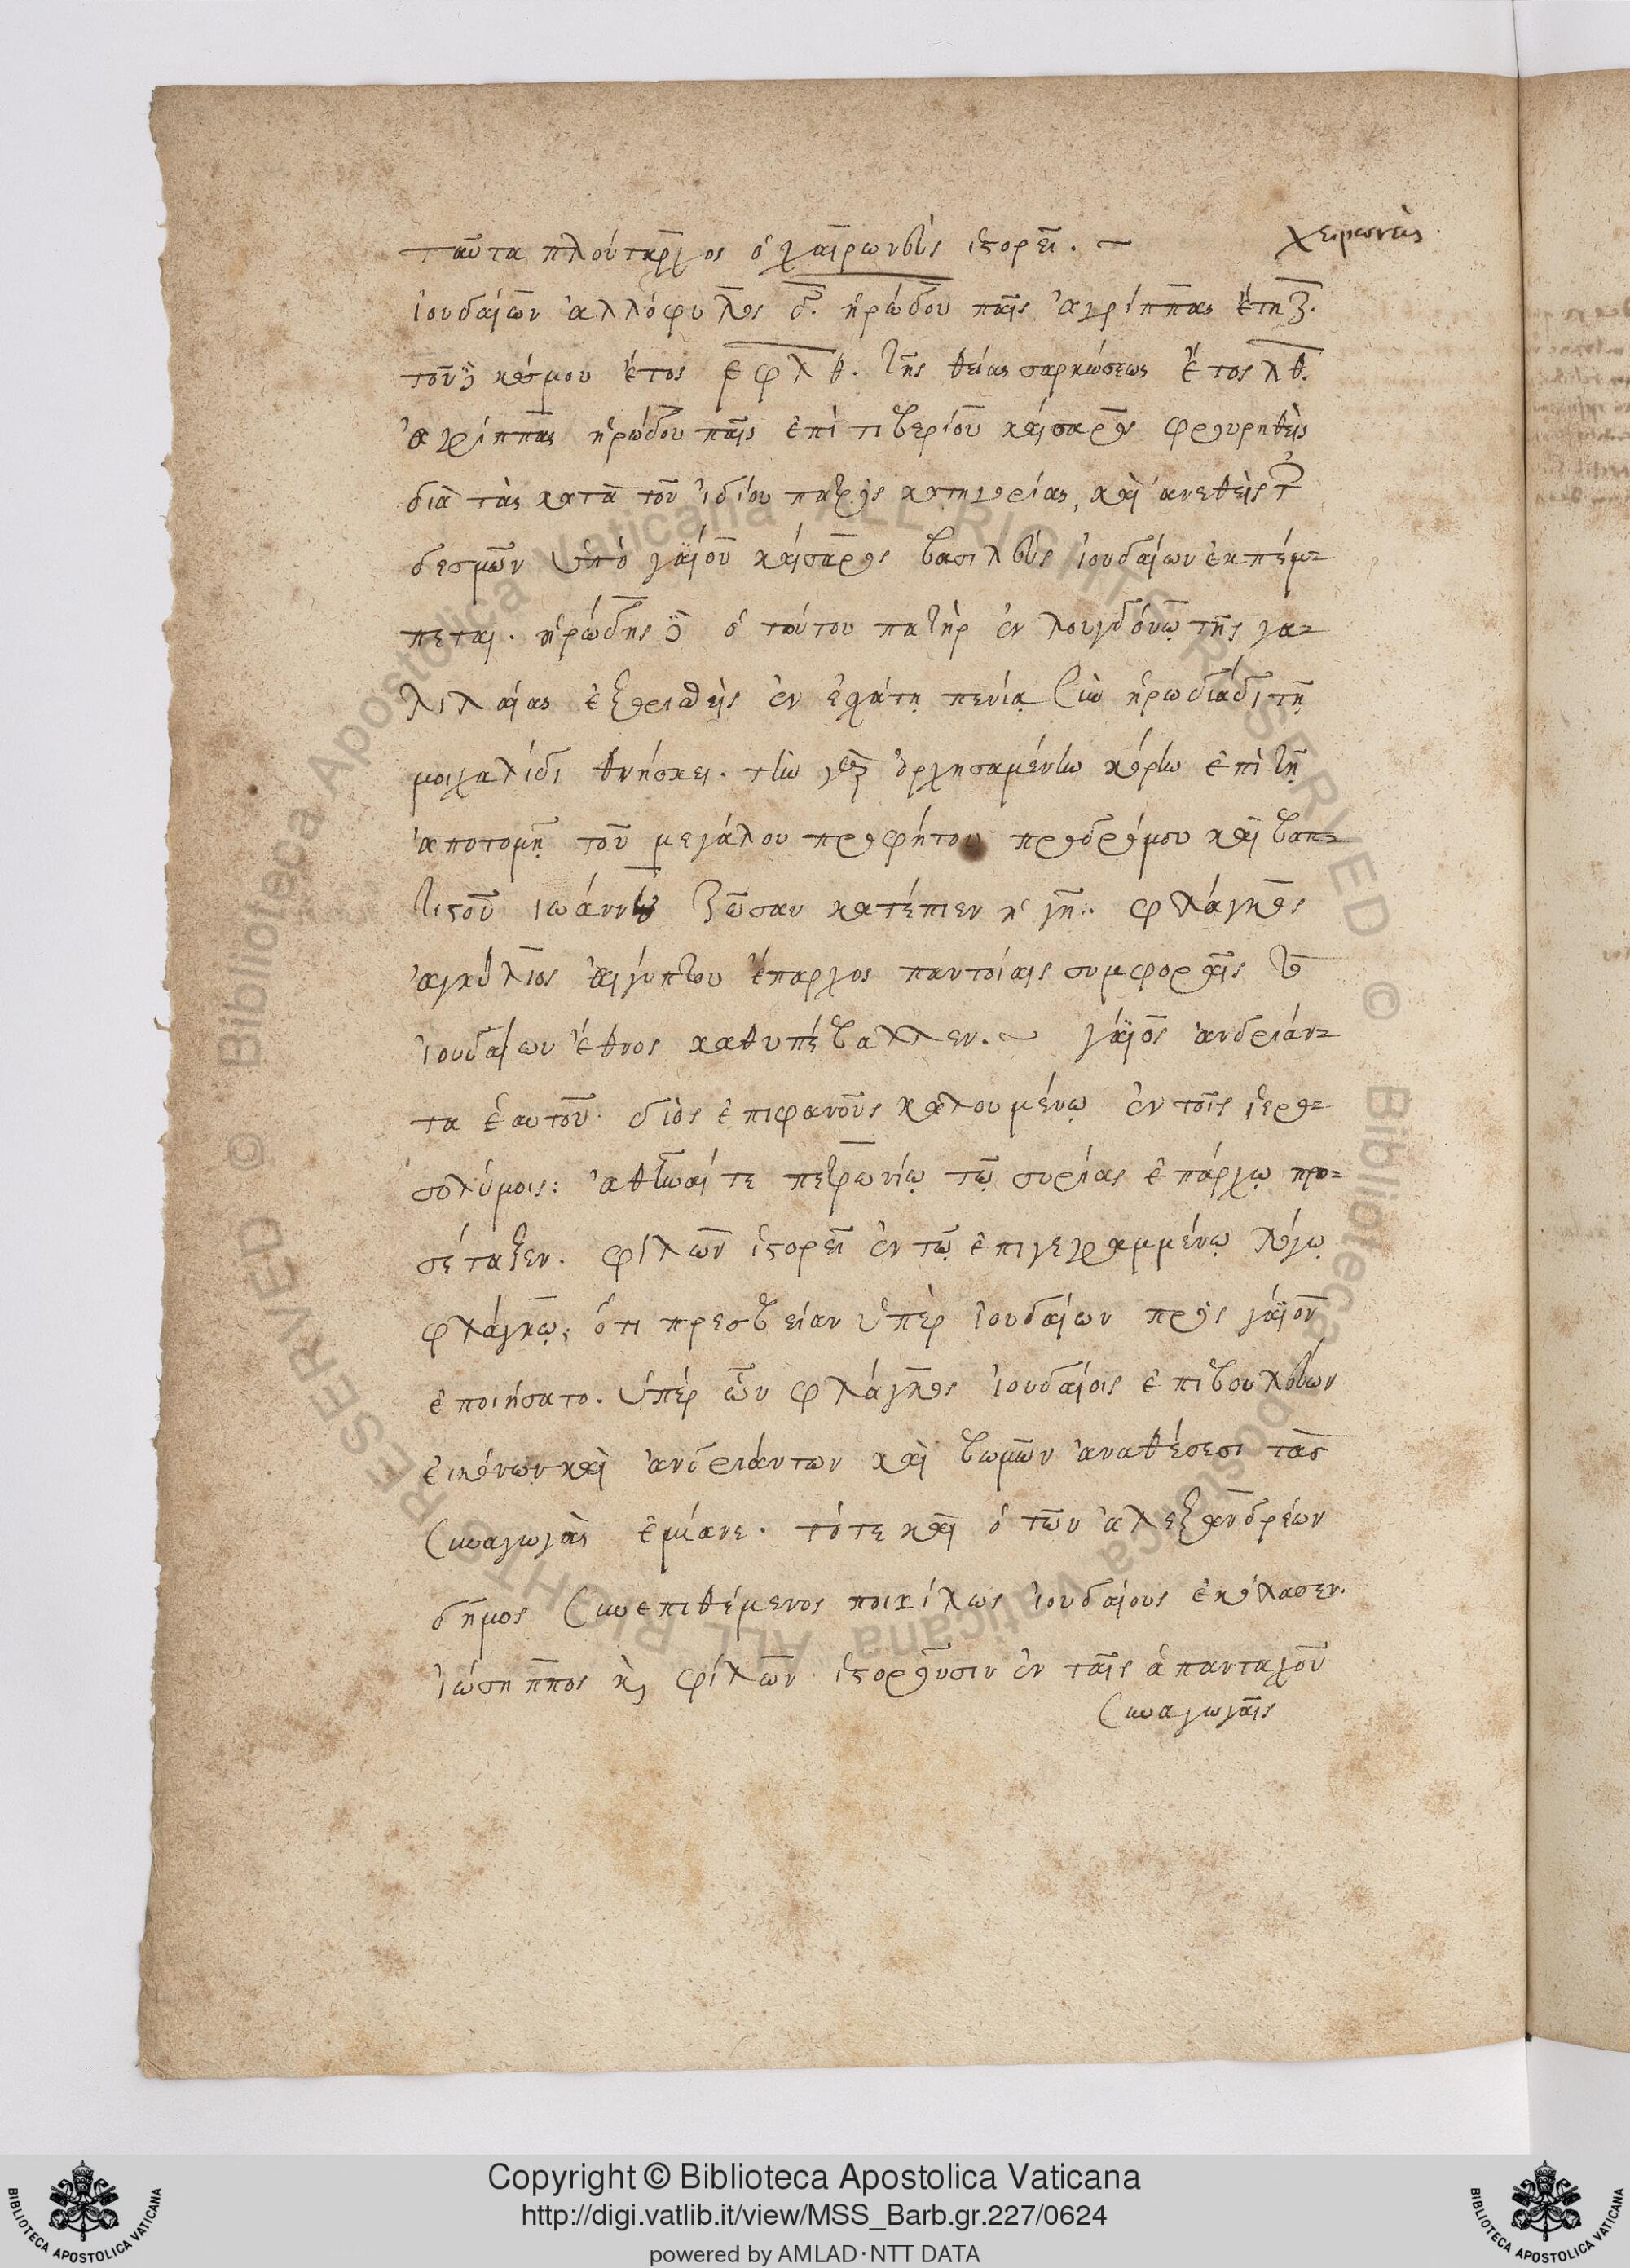 ταῦτα πλούταρχος ὁ χαιρωνεὺς ἱστορεῖ. ~
χειρωνεὺς.
ἰουδαίων ἀλλόφυλος δ̅. ἡρώδου παῖς ἀγρίππας ἔτη ζ̅.
τοῦ κόσμου ἔτος ͵εφλθ. τῆς θείας σαρκώσεως ἔτος λθ.
ἀγρίππας ἡρώδου παῖς ἐπὶ τιβερίου καίσαρος φρουρηθεὶς
διὰ τὰς κατὰ τοῦ ἰδίου πατρὸς κατηγορίας, καὶ ἀνεθεὶς τῶν
δεσμῶν ὑπὸ γαΐου καίσαρος βασιλεὺς ἰουδαίων ἐκπέμ-
πεται. ἡρώδης δὲ ὁ τούτου πατὴρ ἐν λουγδόνῳ τῆς γα-
λιλαίας ἐξορισθεὶς ἐν ἐσχάτῃ πενίᾳ σὺν ἡρωδιάδι τῇ
μοιχαλίδι θνήσκει. τὴν γὰρ ὀρχησαμένην κόρην ἐπὶ τῇ
ἀποτομῇ τοῦ μεγάλου προφήτου προδρόμου καὶ βαπ-
τιστοῦ ἰωάννου ζῶσαν κατέπιεν ἡ γῆ. φλάγκος
ἀγκύλιος αἰγύπτου ἔπαρχος παντοίαις συμφοραῖς τὸ
ἰουδαίων ἔθνος καθυπέβαλλεν. ~ γάϊος ἀνδριάν-
τα ἑαυτοῦ διὸς ἐπιφανοῦς καλουμένῳ ἐν τοῖς ἱερο-
σολύμοις: ἀθεῖναί τε πετρωνίῳ τῷ συρίας ἐπάρχῳ προ-
σέταξεν. φίλων ἱστορεῖ ἐν τῷ ἐπιγεγραμμένῳ λόγῳ
φλάγκῳ; ὅτι πρεσβείαν ὑπὲρ ἰουδαίων πρὸς γάϊον
ἐποιήσατο. ὑπὲρ ὧν φλάγκος ἰουδαίοις ἐπιβουλεύων
εἰκόνων καὶ ἀνδριάντων καὶ βωμῶν ἀναθέσεσι τὰς
συναγωγὰς ἐμίανε. τότε καὶ ὁ τῶν ἀλεξανδρέων
δῆμος συνεπιθέμενος ποικίλως ἰουδαίους ἐκόλασεν.
ἰώσηππος κ, φίλων ἱστοροῦσιν ἐν ταῖς ἁπανταχοῦ
συναγωγαῖς
Copyright © Biblioteca Apostolica Vaticana
http://digi.vatlib.it/view/MSS_Barb.gr.227/0624
powered by AMLAD·NTT DATA